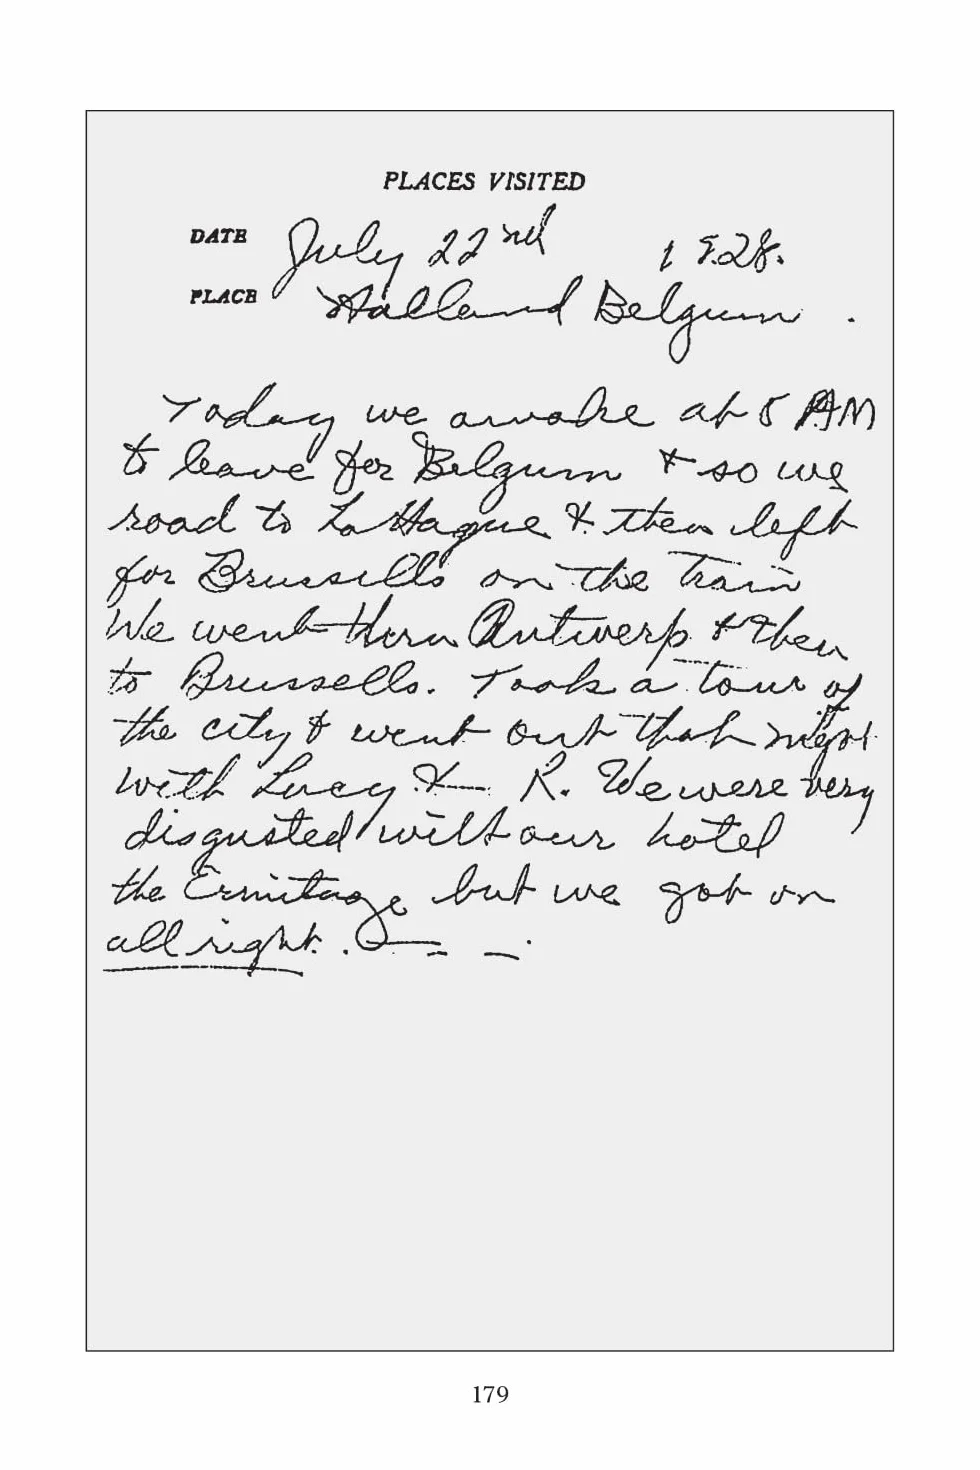 PLACES VISITED
DATE July 22nd 1928.
PLACE Holland Belgum.
Today we awoke at 5 AM
to leave for Belgum & so we
road to La Hague & then left
for Brussells on the Train
We went thru Antwerp & then
to Brussells. Took a tour of
the city & went out that night
with Lucy & R. We were very
disgusted with our hotel
the Ermitage but we got on
all right.
179